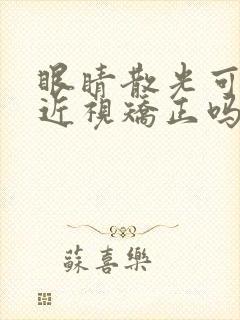 眼睛散光可
近視矯正吗
蘇喜樂